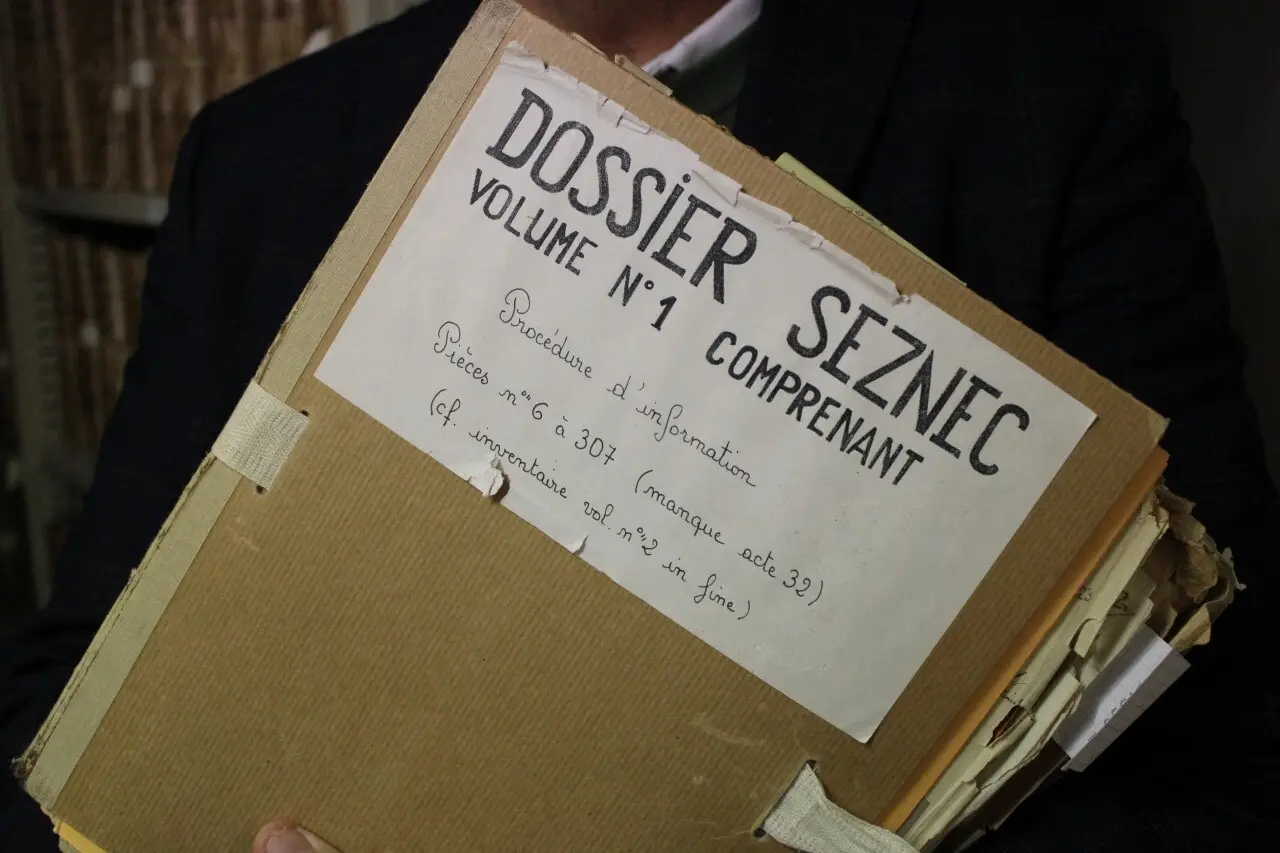 DOSSiER SEZNEC
VOLUME N°1 COMPRENANT
Procédure d'information
Pièces n°s 6 à 307 (manque acte 32)
(cf. inventaire vol. n°s 2 in fine)